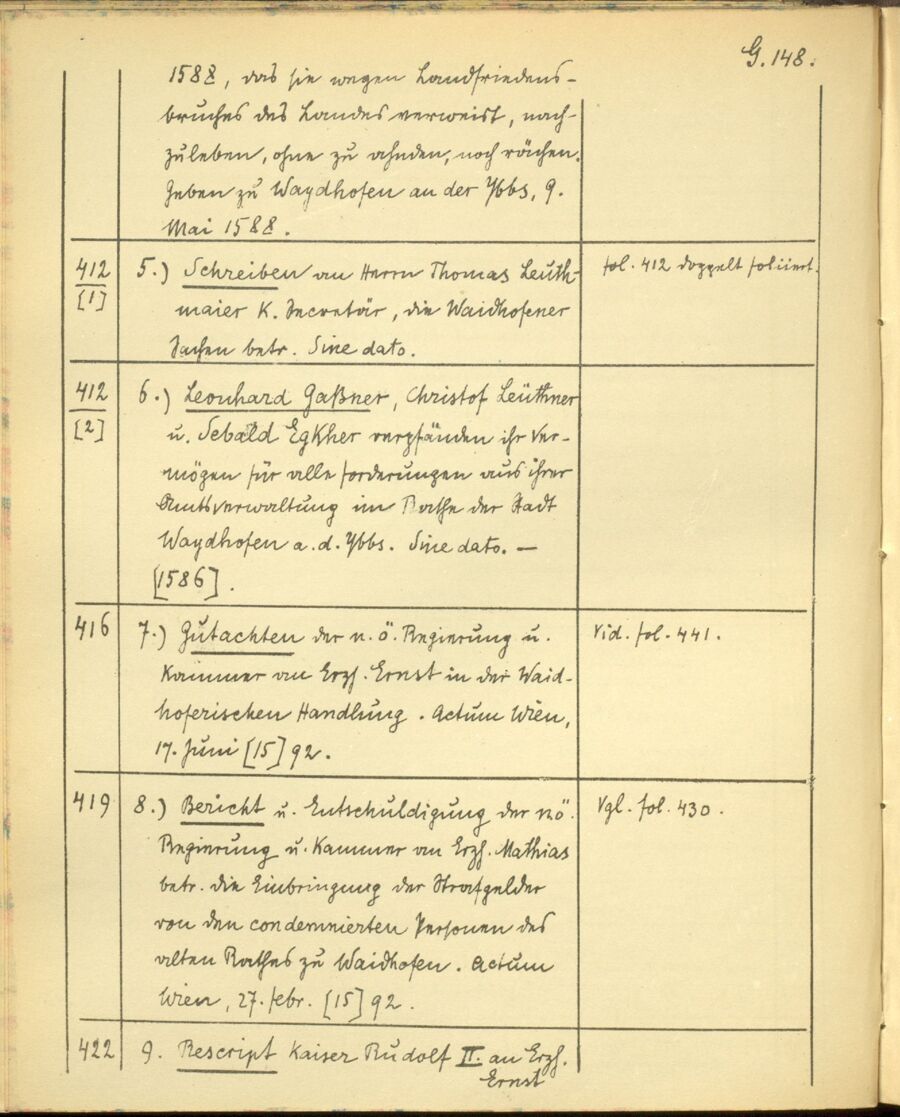 G. 148.
1588, das sie wegen Landfriedens-
bruches des Landes verweist, nach-
zuleben, ohne zu ahnden, noch rächen.
Geben zu Waydhofen an der Ybbs, 9.
Mai 1588.
412 5.) Schreiben an Herrn Thomas Leuth- fol. 412 doppelt foliiert.
[1] maier K. Secretär, die Waidhofener
Sachen betr. Sine dato.
412 6.) Leonhard Gaßner, Christof Leüthner
[2] u. Sebald Egkher verpfänden ihr Ver-
mögen für alle Forderungen aus ihrer
Amtsverwaltung im Rathe der Stadt
Waydhofen a. d. Ybbs. Sine dato. —
[1586].
416 7.) Gutachten der n. ö. Regierung u. Vid. fol. 441.
Kammer an Erzh. Ernst in der Waid-
hoferischen Handlung. Actum Wien,
17. Juni [15]92.
419 8.) Bericht u. Entschuldigung der nö. Vgl. fol. 430.
Regierung u. Kammer an Erzh. Mathias
betr. die Einbringung der Strafgelder
von den condemnierten Personen des
alten Rathes zu Waidhofen. Actum
Wien, 27. Febr. [15]92.
422 9. Rescript Kaiser Rudolf II. an Erzh.
Ernst